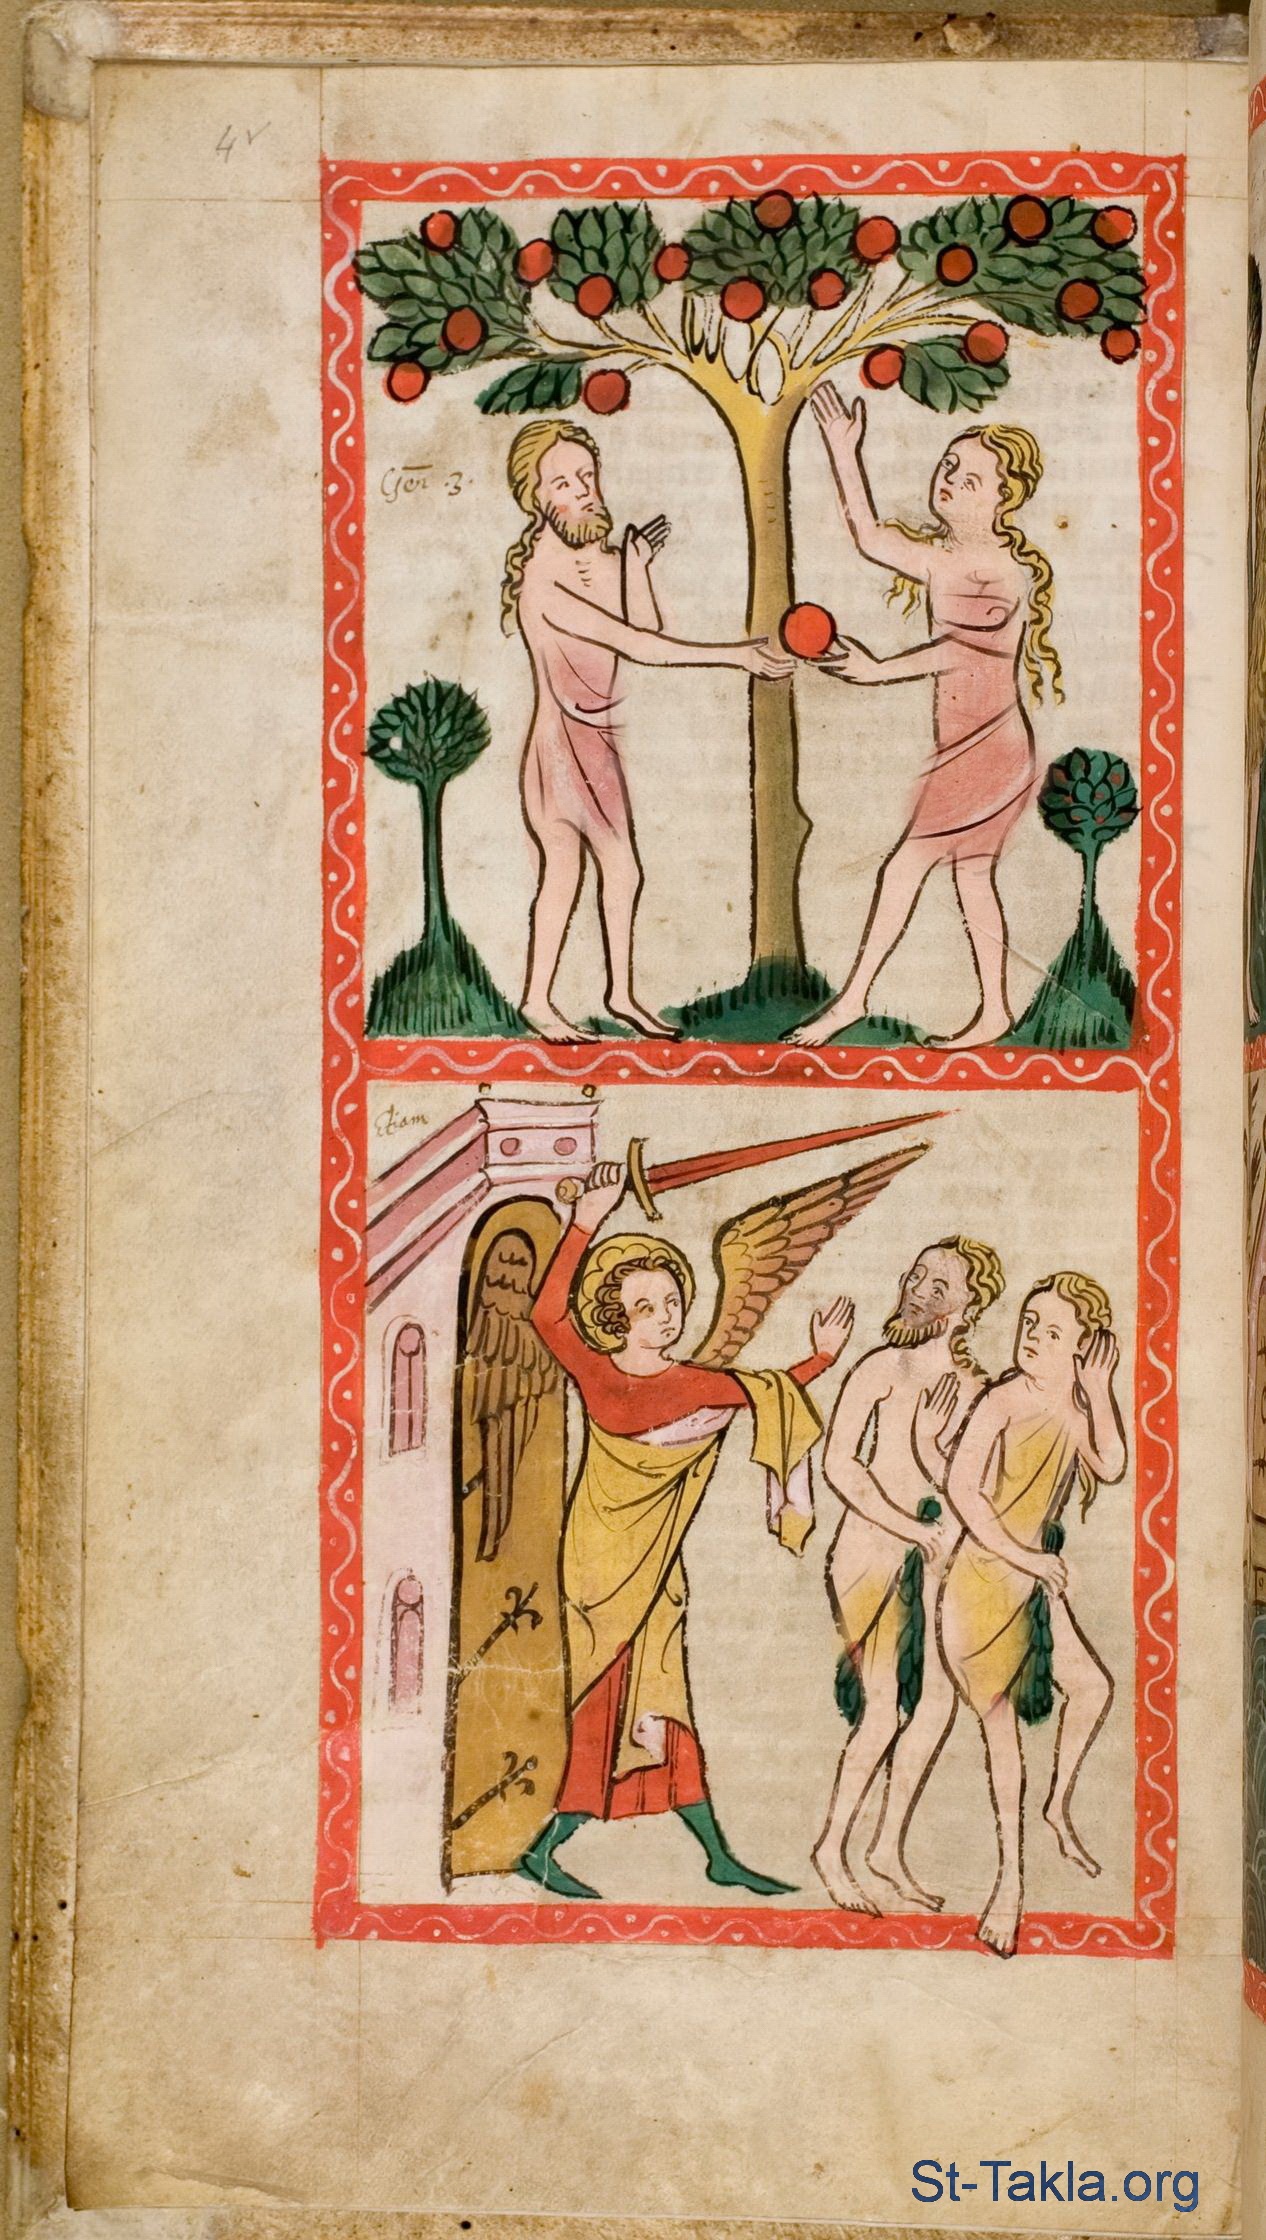 4v
Gen .3.
Etiam
St-Takla.org